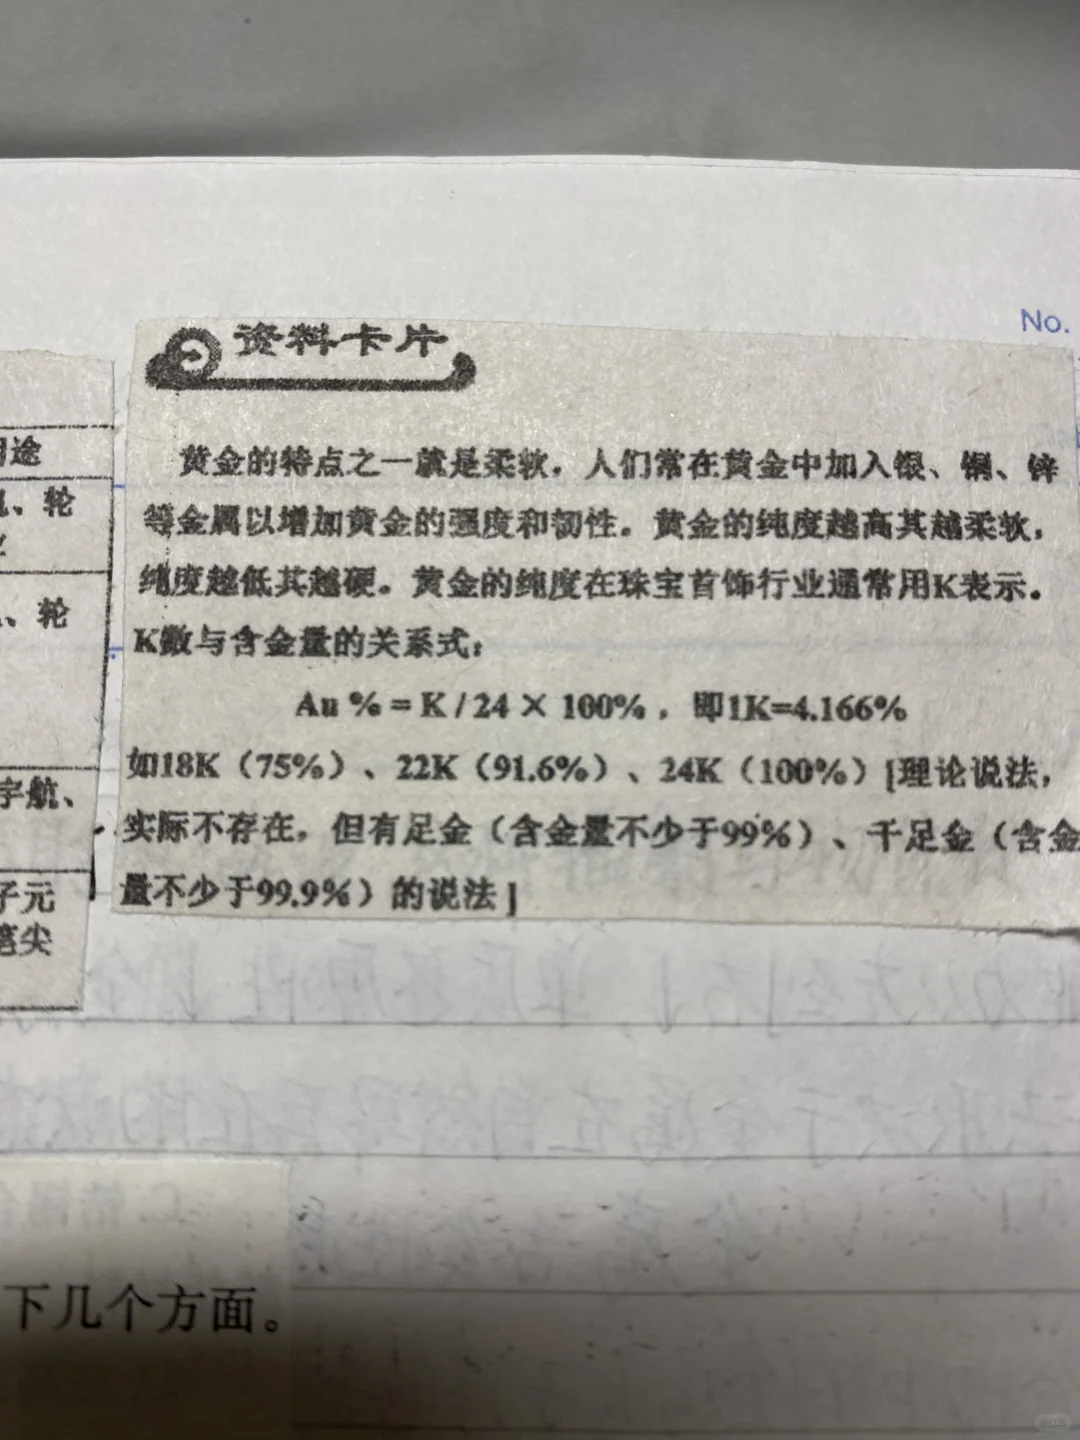 No.
资料卡片
黄金的特点之一就是柔软，人们常在黄金中加入银、铜、锌
等金属以增加黄金的强度和韧性。黄金的纯度越高其越柔软，
纯度越低其越硬。黄金的纯度在珠宝首饰行业通常用K表示。
K数与含金量的关系式：
Au % = K / 24 × 100% ，即1K=4.166%
如18K（75%）、22K（91.6%）、24K（100%）[理论说法，
实际不存在，但有足金（含金量不少于99%）、千足金（含金
量不少于99.9%）的说法]
途
、轮
、轮
宇航、
子元
笔尖
下几个方面。